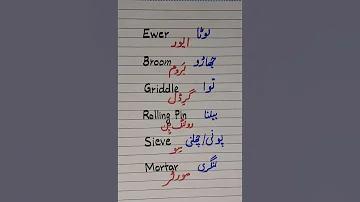 Ewer لوٹا
ایور
Broom جھاڑو
بروم
Griddle توا
گرڈل
Rolling Pin بیلنا
رولنگ پن
Sieve پونی/چھلنی
سیو
Mortar لنگری
مورٹر